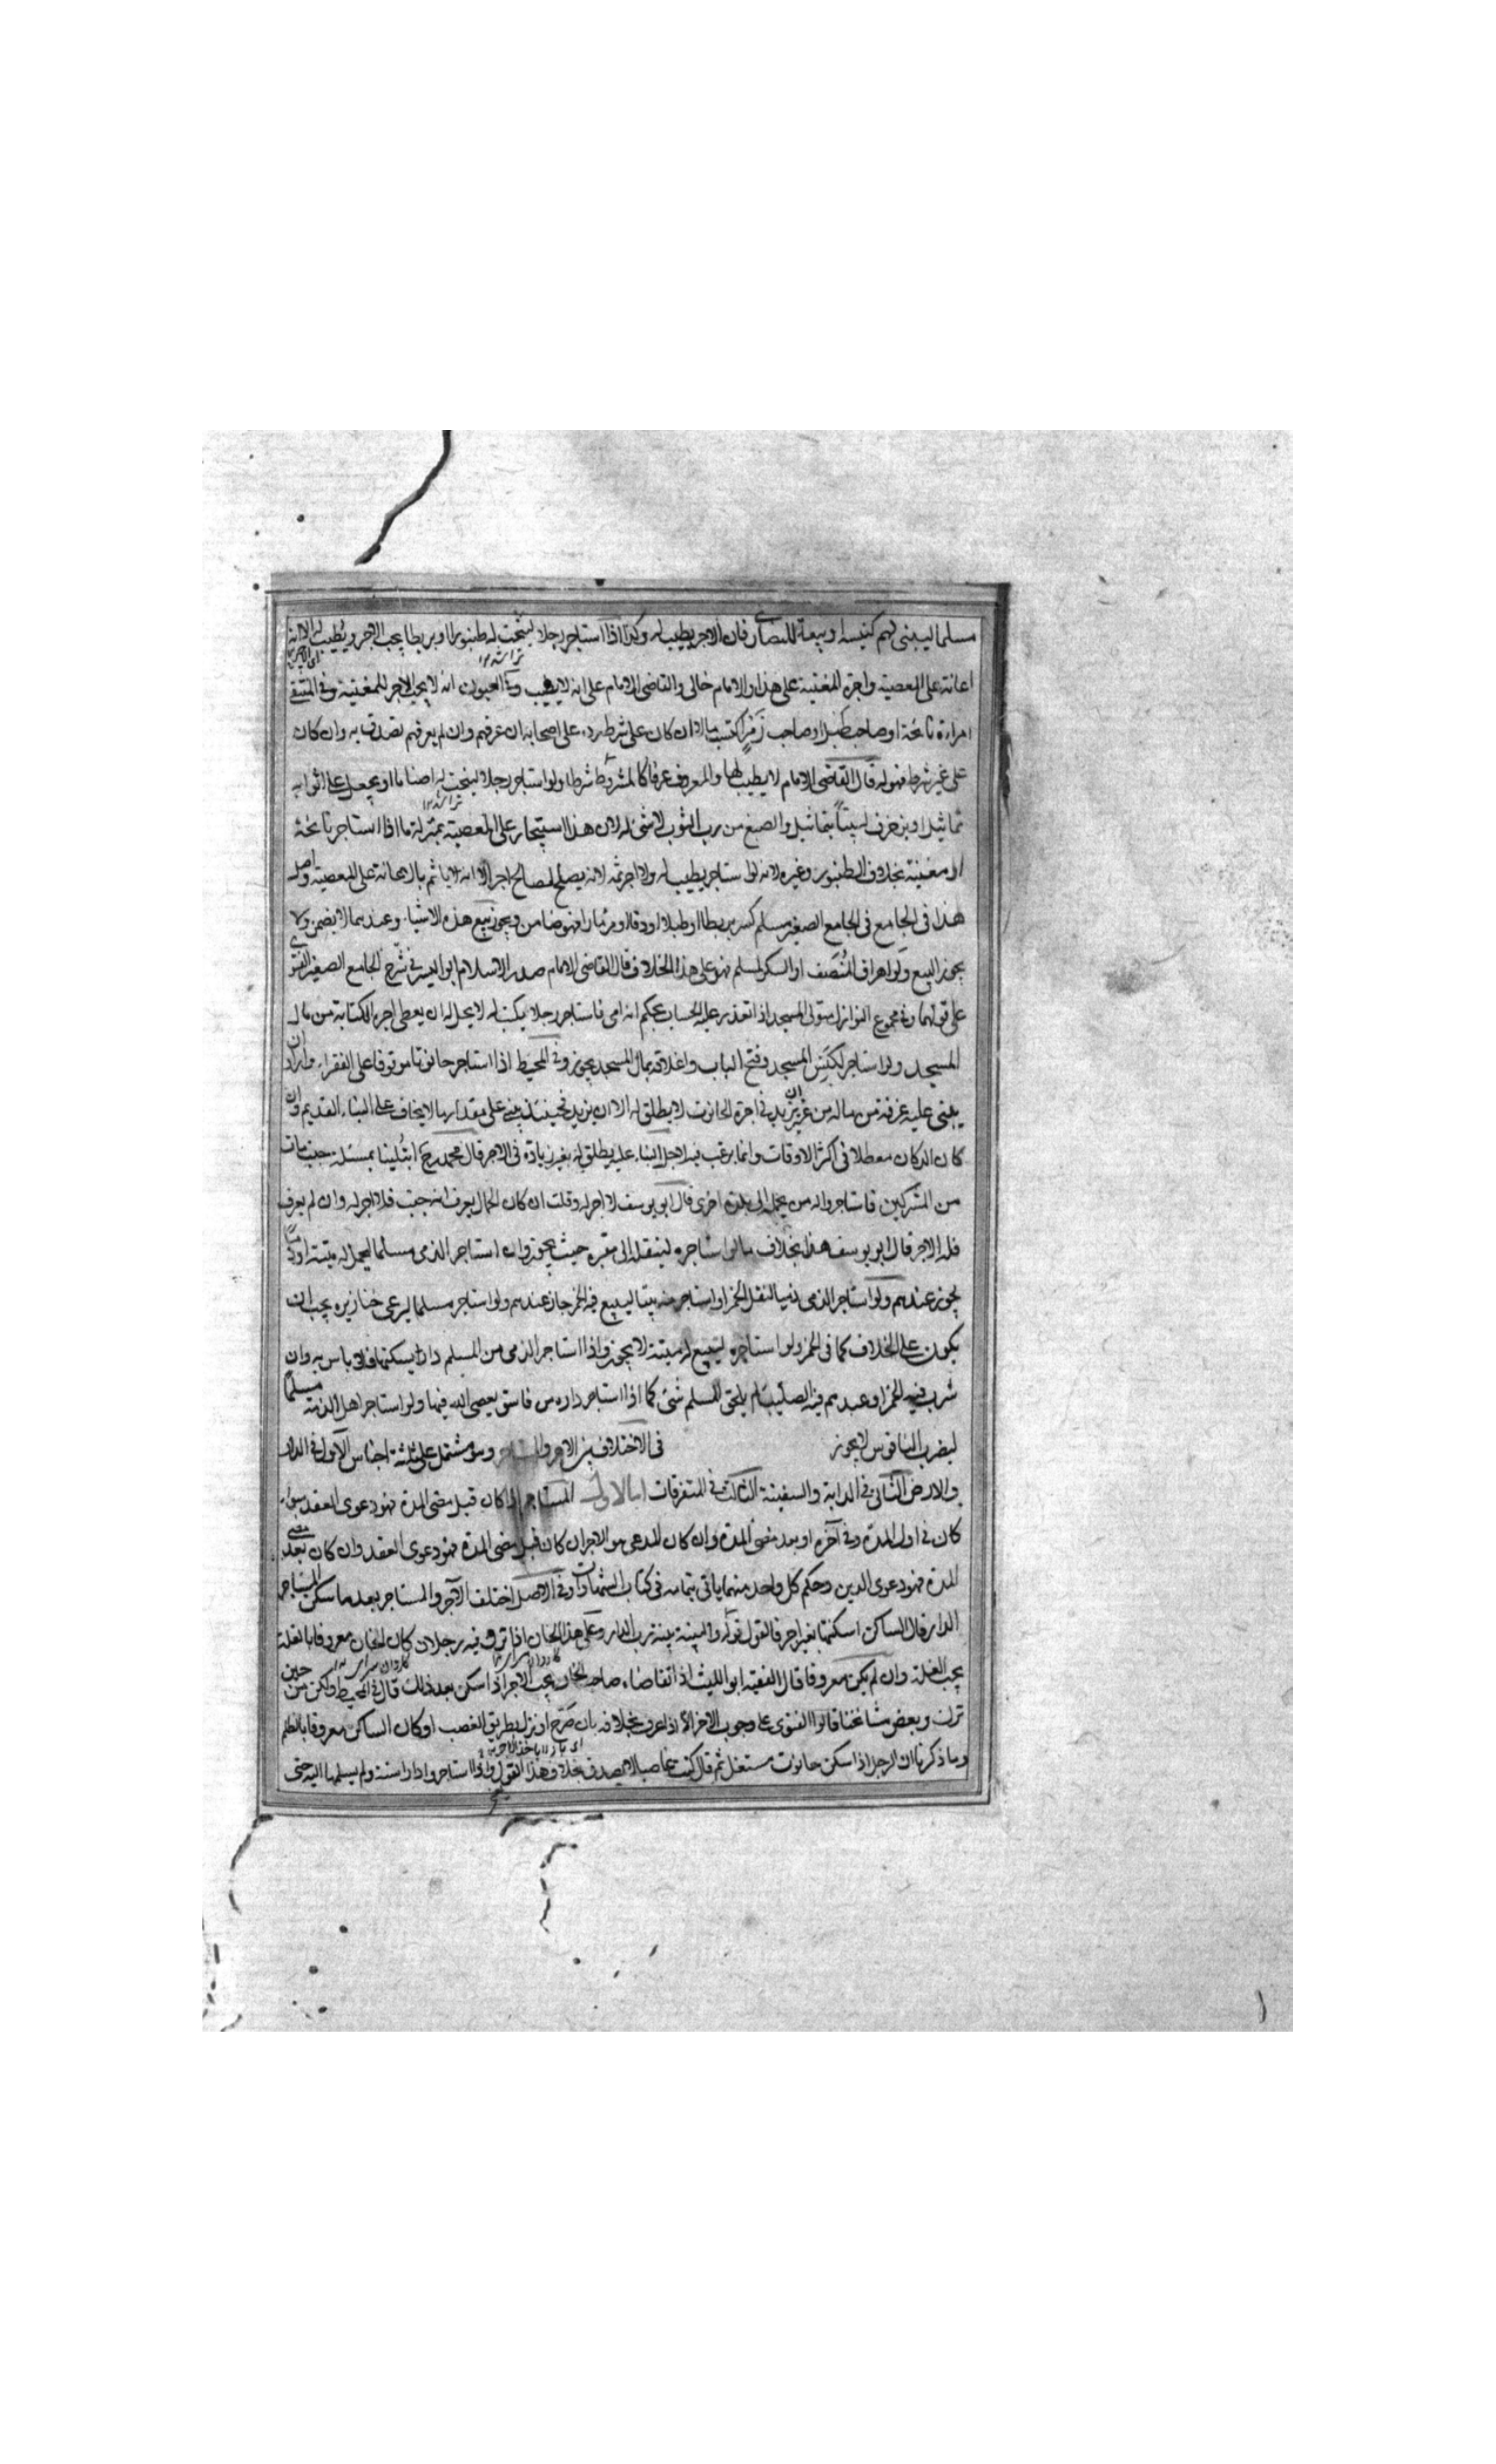 مسلما ليبنى لهم كنيسة او بيعة للنصارى فان الاجر يطيب له وكذا اذا استاجر رجلا لينحت له طنبورا او بربطا يجب الاجر ويطيب له الا انه
اعانة على المعصية واجرة المغنية على هذا والامام خالى والقاضى الامام على انه لا يطيب وفى العيون انه لا يجب الاجر للمغنية وفى المنتقى
امراءة نائحة او صاحب طبل او صاحب زمر اكتسب مالا ان كان على شرط رده على اصحابه ان عرفهم وان لم يعرفهم تصدق به وان كان
على غير شرط فهو له قال القاضى الامام لا يطيب لها والمعروف عرفا كالمشروط شرطا ولو استاجر رجلا لينحت له اصناما او يجعل على اثوابه
تماثيل او يزخرف له بيتا بتماثيل والصبغ من رب الثوب لا شئ له لان هذا استيجار على المعصية بمنزلة ما اذا استاجر نائحة
او مغنية بخلاف الطنبور وغيره لانه لو استاجر يطيب له ولا اجر ثمه لانه يصلح لمصالح اخر الا انه لا ياثم بالاعانة على المعصية واصل
هذا فى الجامع فى الجامع الصغير مسلم كسر بربطا او طبلا او دفا او مزمارا فهو ضامن ويجوز بيع هذه الاشياء وعندهما لا يضمن ولا
يجوز البيع ولو اهراق المنصف او السكر لمسلم فهو على هذا الخلاف قال القاضى الامام صدر الاسلام ابو اليسر فى شرح الجامع الصغير الفتوى
على قولهما وفى مجموع النوازل متولى المسجد اذا تعذر عليه الحساب بحكم انه امى فاستاجر رجلا يكتب له لا يحل له ان يعطى اجر الكتابة من مال
المسجد ولو استاجر لكنس المسجد وفتح الباب واغلاقه بمال المسجد يجوز وفى المحيط اذا استاجر حانوتا موقوفا على الفقراء واراد ان
يبنى عليه غرفة من ماله من غير ان يزيد فى اجرة الحانوت لا يطلق له الا ان يزيد فحينئذ يبنى على مقدار ما لا يخاف على البناء القديم وان
كان الدكان معطلا فى اكثر الاوقات وانما يرغب فيه لاجل البناء عليه يطلق له بغير زيادة فى الاجر قال محمد رح ابتلينا بمسئلة حيث مات
من المشركين فاستاجروا له من يحمله الى بلدة اخرى قال ابو يوسف لا اجر له وقلت ان كان الحمال يعرف انه جيف فلا اجر له وان لم يعرف
فله الاجر قال ابو يوسف هذا بخلاف ما لو استاجره لينقله الى مقبرة حيث يجوز وان استاجر الذمى مسلما ليحمل له ميتة او دما
يجوز عندهم ولو استاجر الذمى ذميا لنقل الخمر او استاجر منه بيتا ليبيع فيه الخمر جاز عندهم ولو استاجر مسلما ليرعى خنازيره يجب ان
يكون على الخلاف كما فى الخمر ولو استاجره ليبيع له ميتة لا يجوز واذا استاجر الذمى من المسلم دارا ليسكنها فلا باس به وان
شرب فيه الخمر او عبد هم فيه الصليب لم يلحق المسلم شئ كما اذا استاجر داره من فاسق يعصى الله فيها ولو استاجر اهل الذمة مسلما
ليضرب الناقوس لا يجوز فى الاختلاف بين الاجر والمستاجر وهو مشتمل على ثلثة اجناس الاول فى الدار
والارض الثانى فى الدابة والسفينة الثالث فى المتفرقات اما الاول المستاجر ان كان قبل مضى المدة فهو دعوى العقد سواء
كان فى اول المدة وفى آخره او بعد مضى المدة وان كان المدعى هو الاجر ان كان قبل مضى المدة فهو دعوى العقد وان كان بعد مضى
المدة فهو دعوى الدين وحكم كل واحد منهما ياتى بتمامه فى كتاب الشهادات وفى الاصل اختلف الآجر والمستاجر بعد ما سكن المستاجر
الدار قال الساكن اسكنتها بغير اجر فالقول قوله والبينة بينة رب الدار وعلى هذا الخان اذا نزل فيه رجلان كان الخان معروفا بالغلة
يجب الغلة وان لم يكن معروفا قال الفقيه ابو الليث اذا تقاضاه صاحب الخان يجب الاجر اذا سكن بعد ذلك قال فى المحيط ولكن من حين
نزل وبعض مشائخنا قالوا الفتوى على وجوب الاجر الا اذا عرف بخلافه بان صرح او نزل بطريق الغصب او كان الساكن معروفا بالظلم
وما ذكرنا ان الرجل اذا سكن حانوت مستغل ثم قال كنت غاصبا لا يصدق بخلاف هذا القول واذا استاجر دارا سنة ولم يسلمها اليه حتى